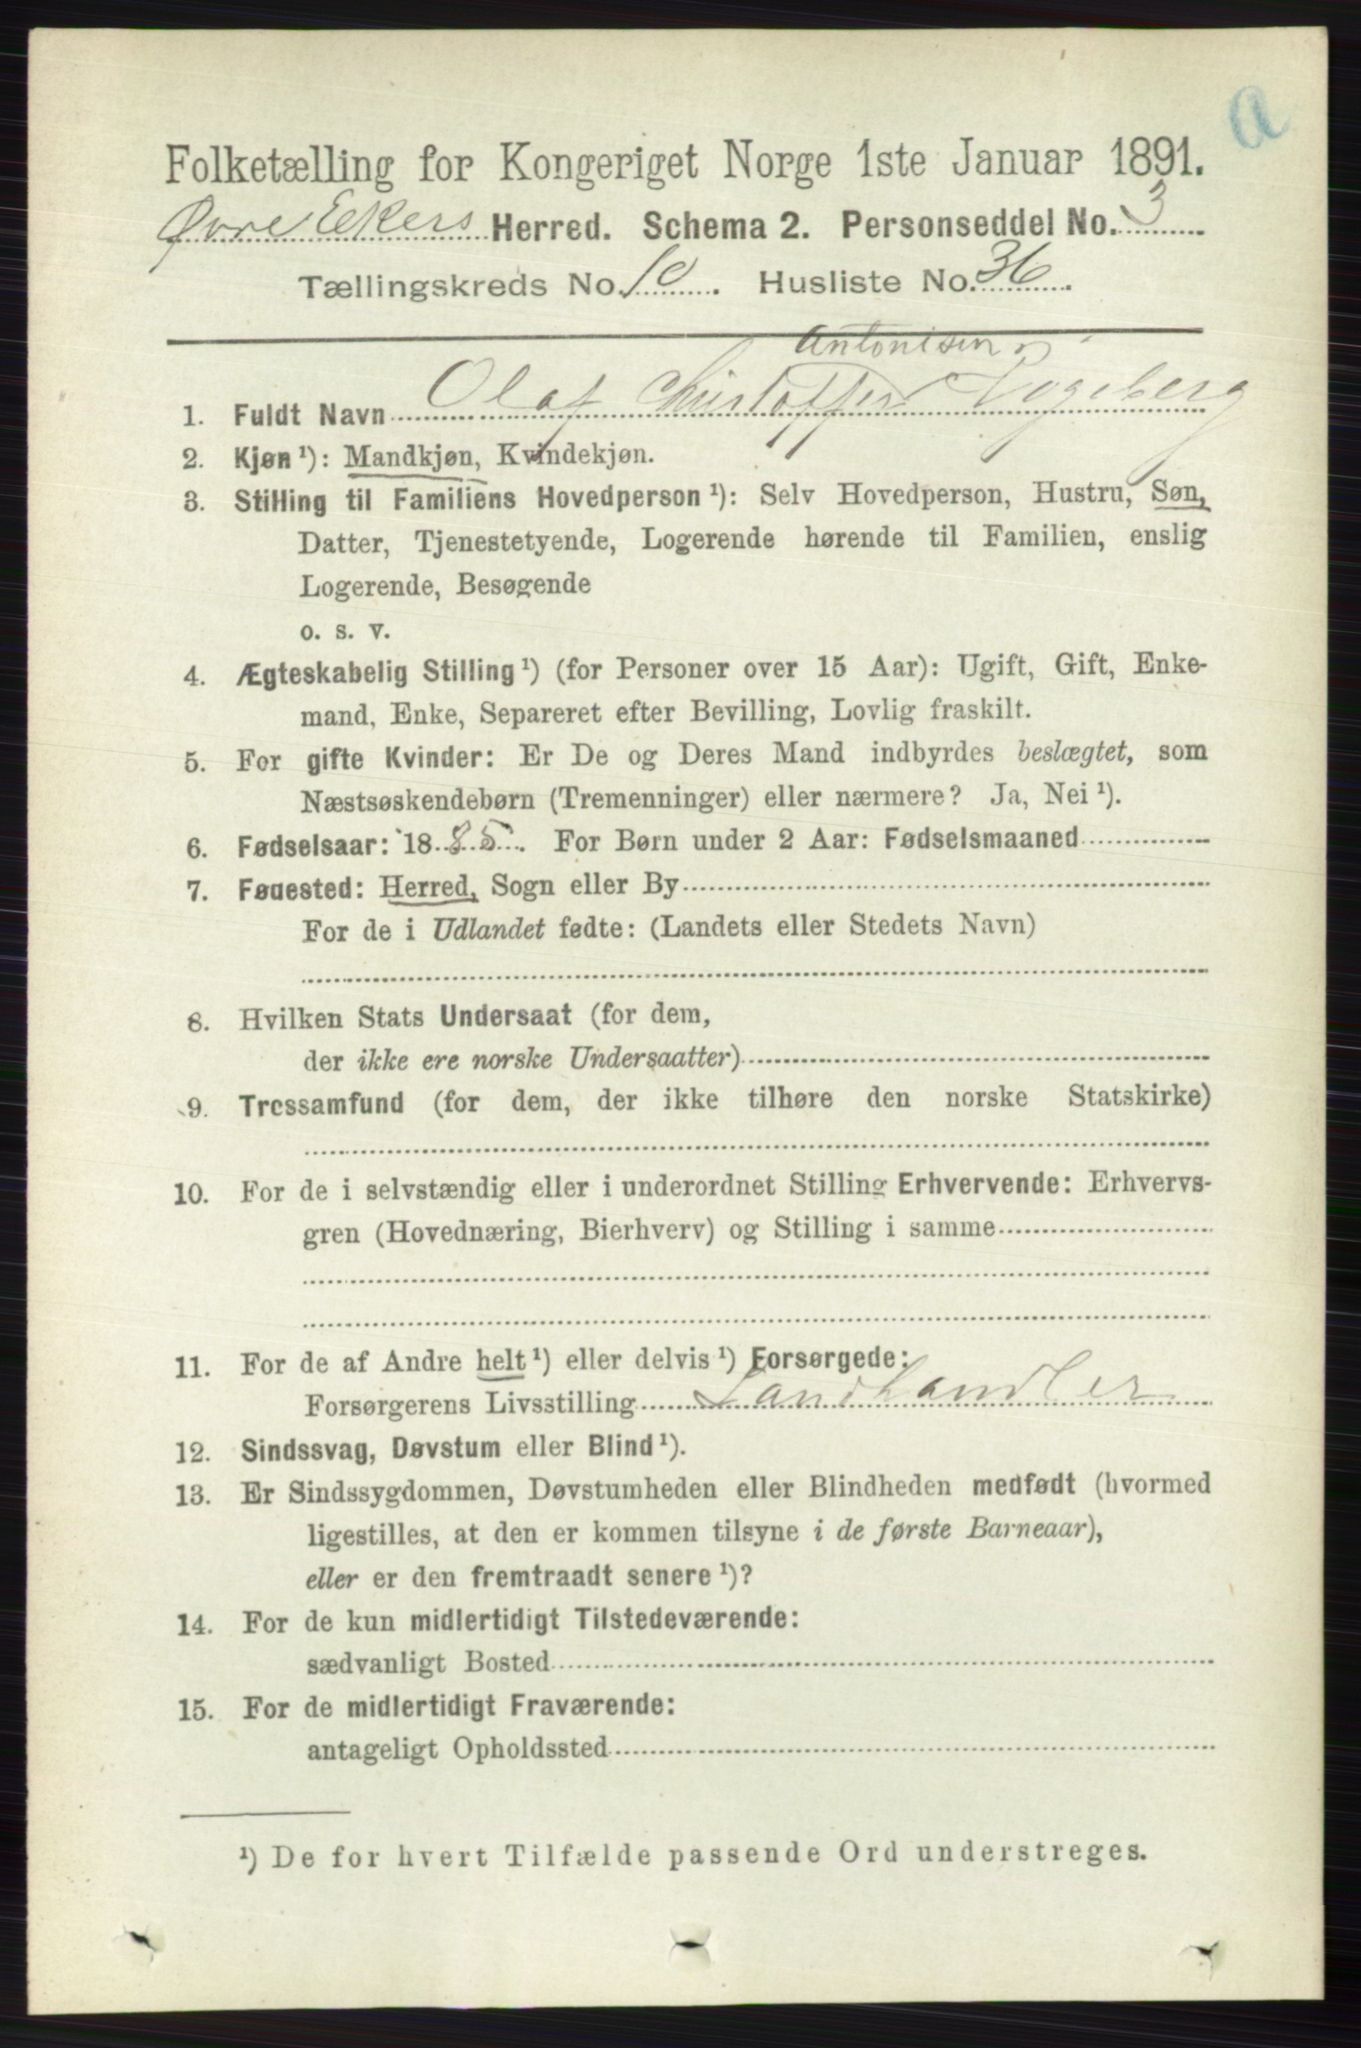 a
Folketælling for Kongeriget Norge 1ste Januar 1891.
Øvre Ekers Herred. Schema 2. Personseddel No. 3
Tællingskreds No. 10. Husliste No. 36.
Antonisen
1. Fuldt Navn Olaf Christoffer
2. Kjøn ¹): Mandkjøn, Kvindekjøn.
3. Stilling til Familiens Hovedperson ¹): Selv Hovedperson, Hustru, Søn,
Datter, Tjenestetyende, Logerende hørende til Familien, enslig
Logerende, Besøgende
o. s. v.
4. Ægteskabelig Stilling ¹) (for Personer over 15 Aar): Ugift, Gift, Enke-
mand, Enke, Separeret efter Bevilling, Lovlig fraskilt.
5. For gifte Kvinder: Er De og Deres Mand indbyrdes beslægtet, som
Næstsøskendebørn (Tremenninger) eller nærmere? Ja, Nei ¹).
6. Fødselsaar: 1885. For Børn under 2 Aar: Fødselsmaaned
7. Føuested: Herred, Sogn eller By
For de i Udlandet fødte: (Landets eller Stedets Navn)
8. Hvilken Stats Undersaat (for dem,
der ikke ere norske Undersaatter)
9. Trossamfund (for dem, der ikke tilhøre den norske Statskirke)
10. For de i selvstændig eller i underordnet Stilling Erhvervende: Erhvervs-
gren (Hovednæring, Bierhverv) og Stilling i samme
11. For de af Andre helt ¹) eller delvis ¹) Forsørgede:
Forsørgerens Livsstilling Landhandler
12. Sindssvag, Døvstum eller Blind ¹).
13. Er Sindssygdommen, Døvstumheden eller Blindheden medfødt (hvormed
ligestilles, at den er kommen tilsyne i de første Barneaar),
eller er den fremtraadt senere ¹)?
14. For de kun midlertidigt Tilstedeværende:
sædvanligt Bosted
15. For de midlertidigt Fraværende:
antageligt Opholdssted
¹) De for hvert Tilfælde passende Ord understreges.